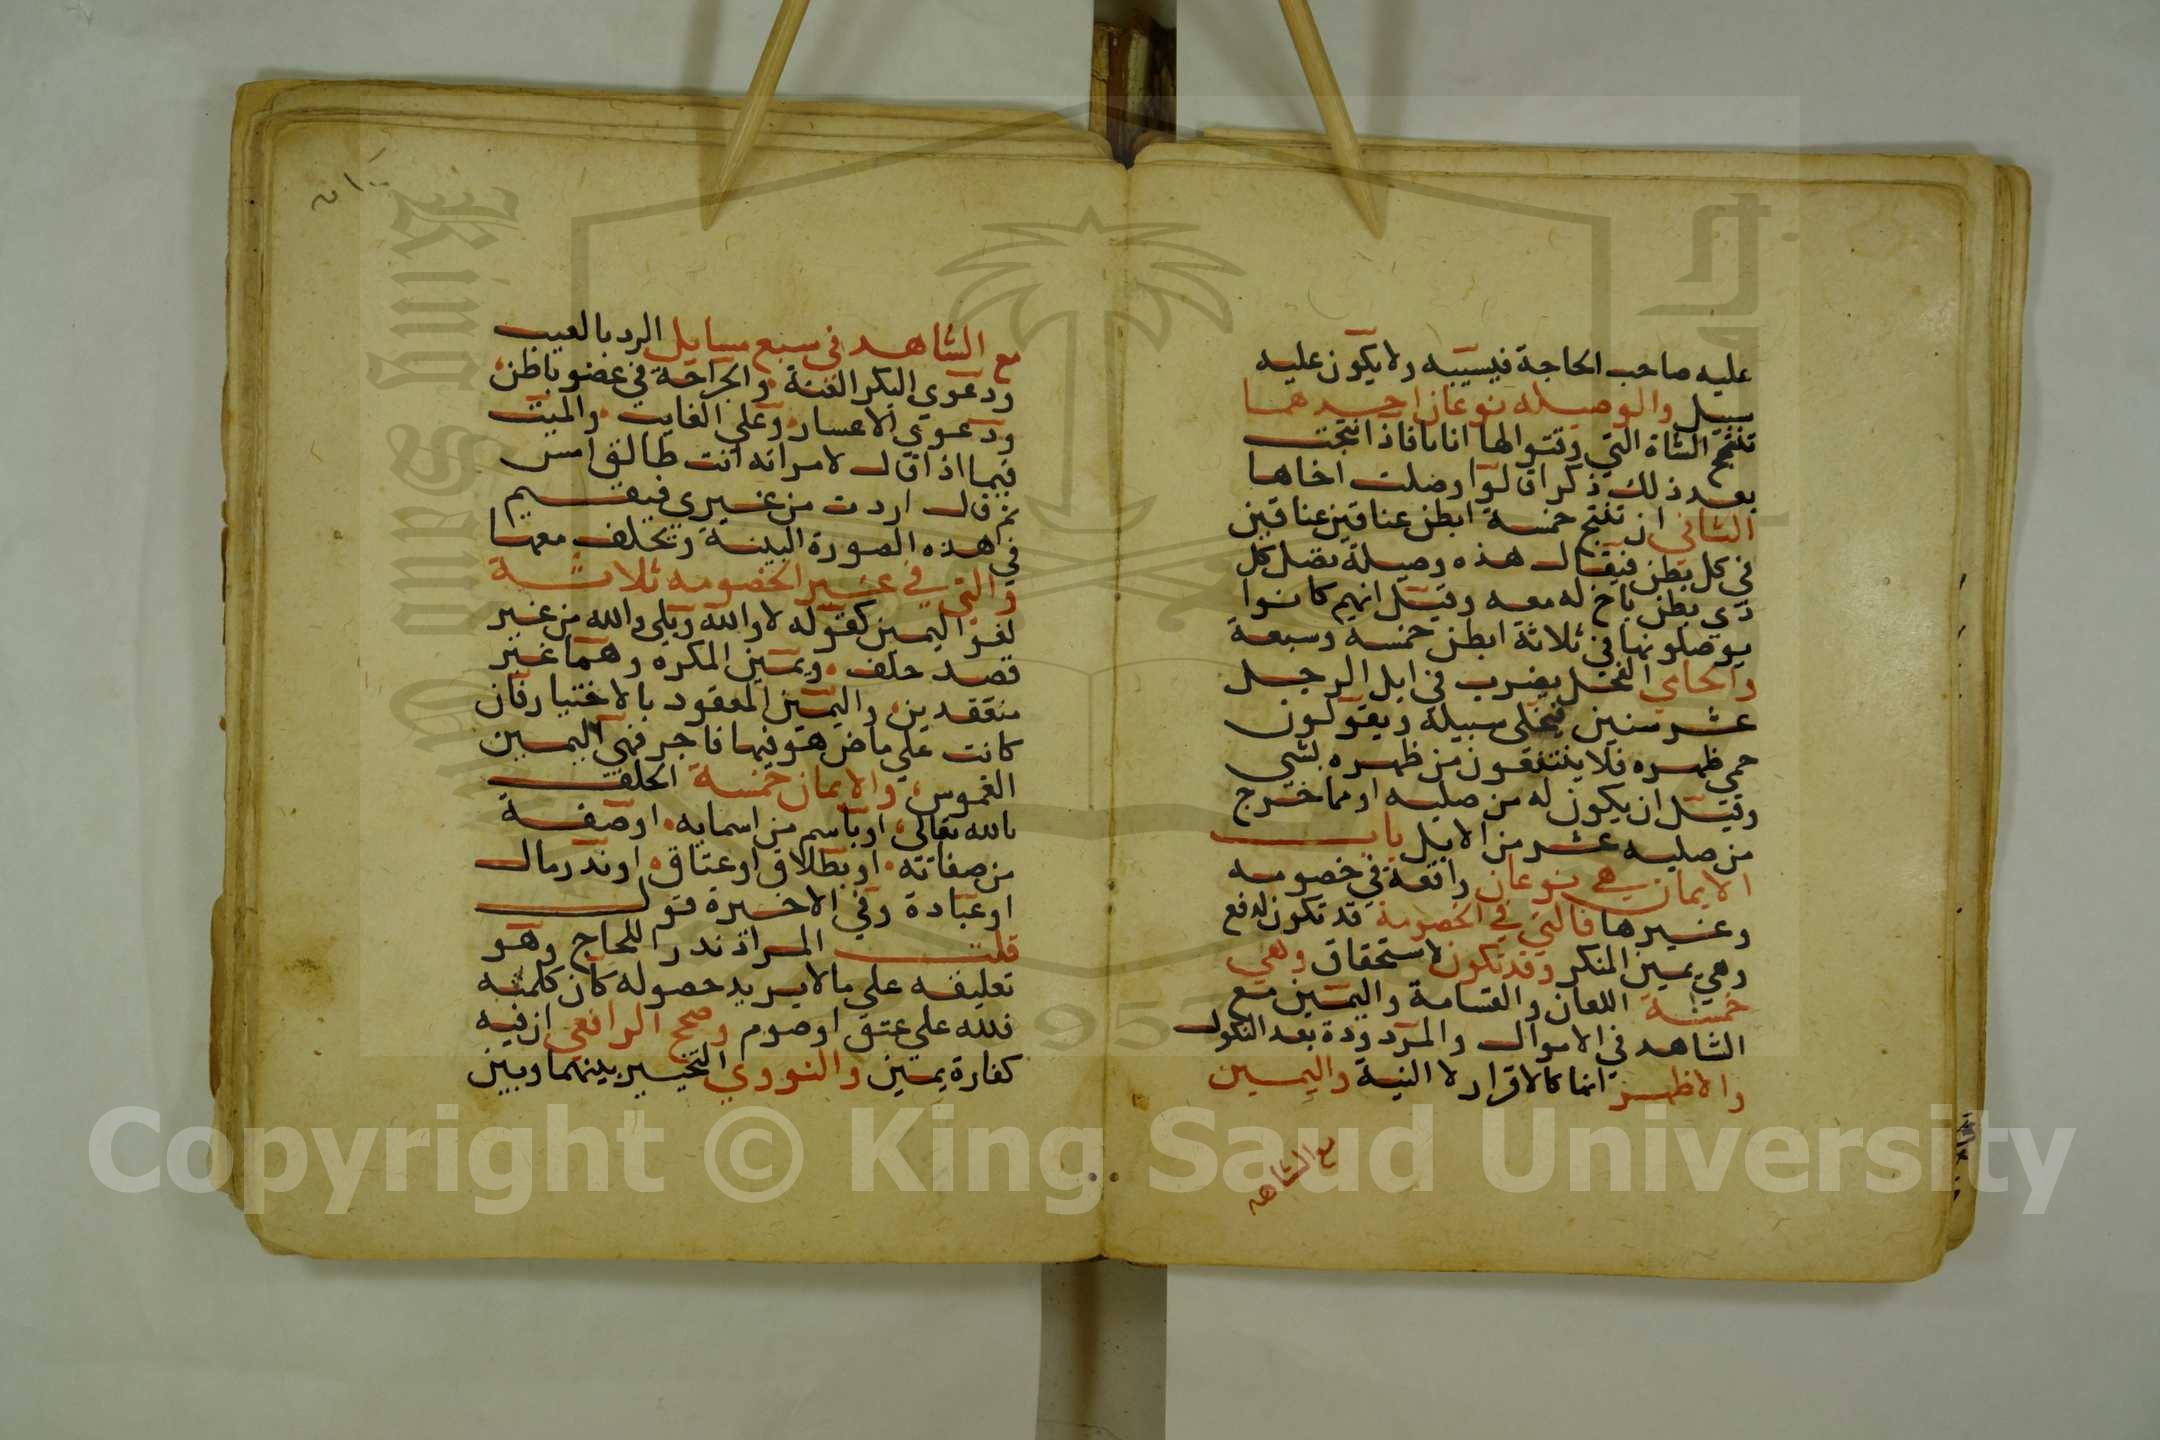 عليه صاحب الحاجة فيسيبه ولا يكون عليه
سبيل والوصيله نوعان احدهما
تنتج الشاة التي وتتوالها اناثا فاذا انتجت
بعد ذلك ذكرا قالوا وصلت اخاها
الثاني ان تنتج خمسة ابطن عناقين عناقين
في كل بطن فيقال هذه وصيلة تصل كل
ذي بطن باخ له معه وقيل انهم كانوا
يوصلونها في ثلاثة ابطن خمسة وسبعة
والحامي الفحل يضرب في ابل الرجل
عشر سنين فيخلى سبيله ويقولون
حمي ظهره فلا ينتفعون من ظهره بشي
وقيل ان يكون له من صلبه او مما خرج
من صلبه عشر من الابل باب
الايمان هي نوعان واقعة في خصومه
وغيرها فالتي في الخصومة قد تكون لدفع
وهي يمين المنكر وقد تكون لاستحقاق وهي
خمسة اللعان والقسامة واليمين مع
الشاهد في الاموال والمردودة بعد النكول
والاظهر انها كالاقرار لا البينة واليمين
مع الشاهد
مع الشاهد في سبع مسايل الرد بالعيب
ودعوي البكر العنة والجراحة في عضو باطن
ودعوي الاعسار وعلي الغايب والميت
فيما اذا قال لامراته انت طالق امس
ثم قال اردت من غيري فيقيم
في هذه الصورة البينة ويحلف معها
والتي في غير الخصومه ثلاثة
لغو اليمين كقوله لا والله وبلي والله من غير
قصد حلف ويمين المكره وهما غير
منعقدين واليمين المعقود بالاختيار فان
كانت علي ماض هو فيها فاجر فهي اليمين
الغموس والايمان خمسة الحلف
بالله تعالى او باسم من اسمايه او صفة
من صفاته او بطلاق او عتاق او نذر مال
او عبادة وفي الاخيرة قول
قلت المراد نذر اللجاج وهو
تعليقه علي ما لا يريد حصوله كان كلمته
فلله علي عتق او صوم وصحح الرافعي ان فيه
كفارة يمين والنووي التخيير بينهما وبين
Copyright © King Saud University
King Saud University
1957